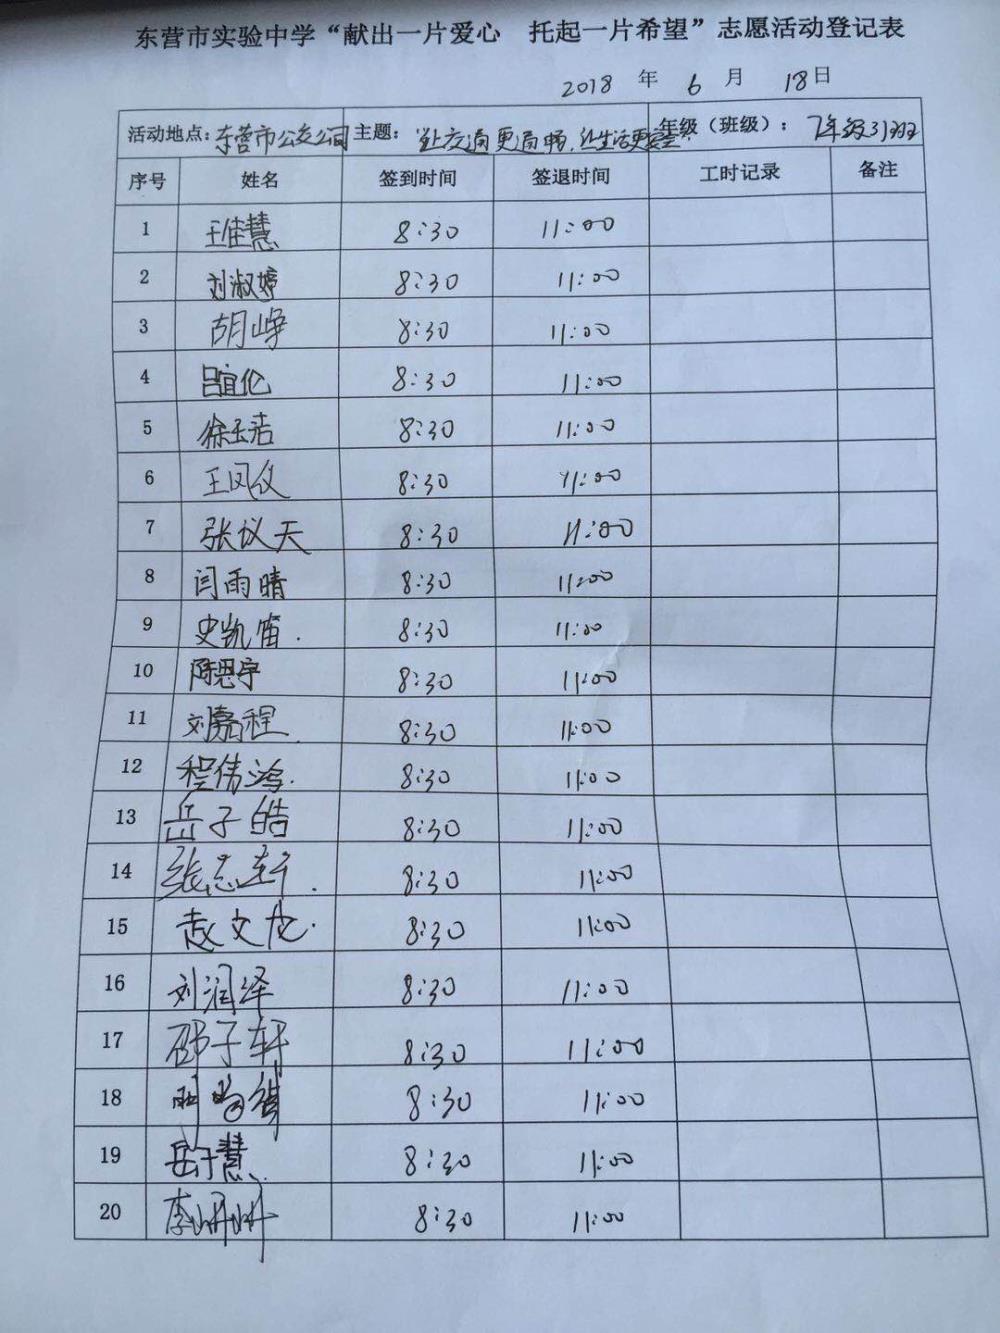 东营市实验中学“献出一片爱心 托起一片希望”志愿活动登记表
2018 年 6 月 18日
活动地点：东营市公交公司 主题：让交通更通畅，让生活更 年级（班级）：7年级31班
序号 姓名 签到时间 签退时间 工时记录 备注
1 王佳慧 8:30 11:00
2 刘淑婷 8:30 11:00
3 胡峥 8:30 11:00
4 吕宜伦 8:30 11:00
5 徐玉洁 8:30 11:00
6 王凤仪 8:30 11:00
7 张议天 8:30 11:00
8 闫雨晴 8:30 11:00
9 史凯笛. 8:30 11:00
10 陈恩宇 8:30 11:00
11 刘嘉程 8:30 11:00
12 程伟鸿. 8:30 11:00
13 岳子皓 8:30 11:00
14 张志轩. 8:30 11:00
15 赵文龙. 8:30 11:00
16 刘润泽 8:30 11:00
17 邵子轩 8:30 11:00
18 8:30 11:00
19 岳子慧 8:30 11:00
20 李姗姗 8:30 11:00